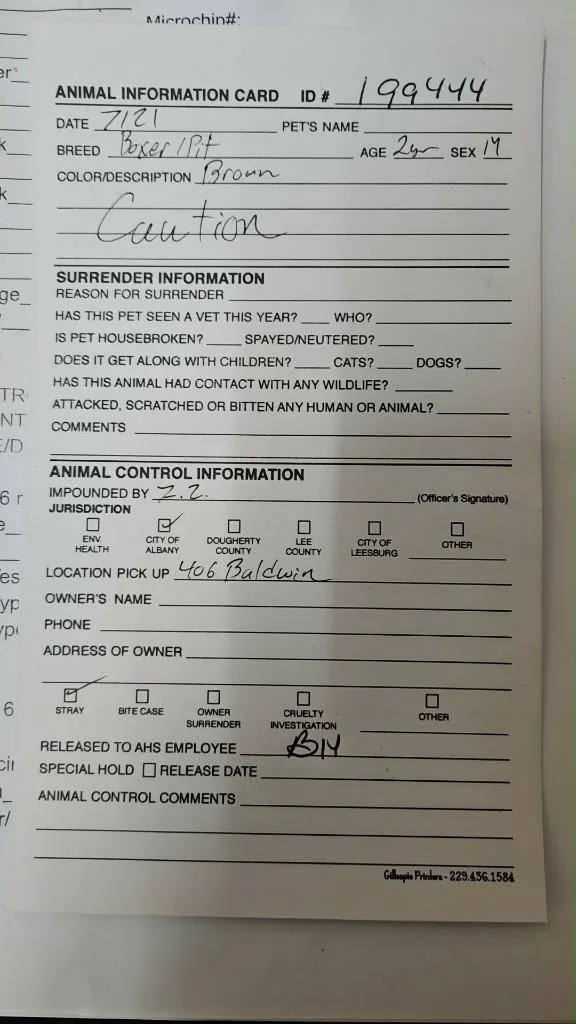 Microchip#:
ANIMAL INFORMATION CARD ID # 199444
DATE 7/21 PET'S NAME
BREED Boxer/Pit AGE 2yr SEX M
COLOR/DESCRIPTION Brown
Caution
SURRENDER INFORMATION
REASON FOR SURRENDER
HAS THIS PET SEEN A VET THIS YEAR? WHO?
IS PET HOUSEBROKEN? SPAYED/NEUTERED?
DOES IT GET ALONG WITH CHILDREN? CATS? DOGS?
HAS THIS ANIMAL HAD CONTACT WITH ANY WILDLIFE?
ATTACKED, SCRATCHED OR BITTEN ANY HUMAN OR ANIMAL?
COMMENTS
ANIMAL CONTROL INFORMATION
IMPOUNDED BY Z.Z. (Officer's Signature)
JURISDICTION
ENV. HEALTH CITY OF ALBANY DOUGHERTY COUNTY LEE COUNTY CITY OF LEESBURG OTHER
LOCATION PICK UP 406 Baldwin
OWNER'S NAME
PHONE
ADDRESS OF OWNER
STRAY BITE CASE OWNER SURRENDER CRUELTY INVESTIGATION OTHER
RELEASED TO AHS EMPLOYEE BM
SPECIAL HOLD RELEASE DATE
ANIMAL CONTROL COMMENTS
Gillespie Printers - 229.436.1584